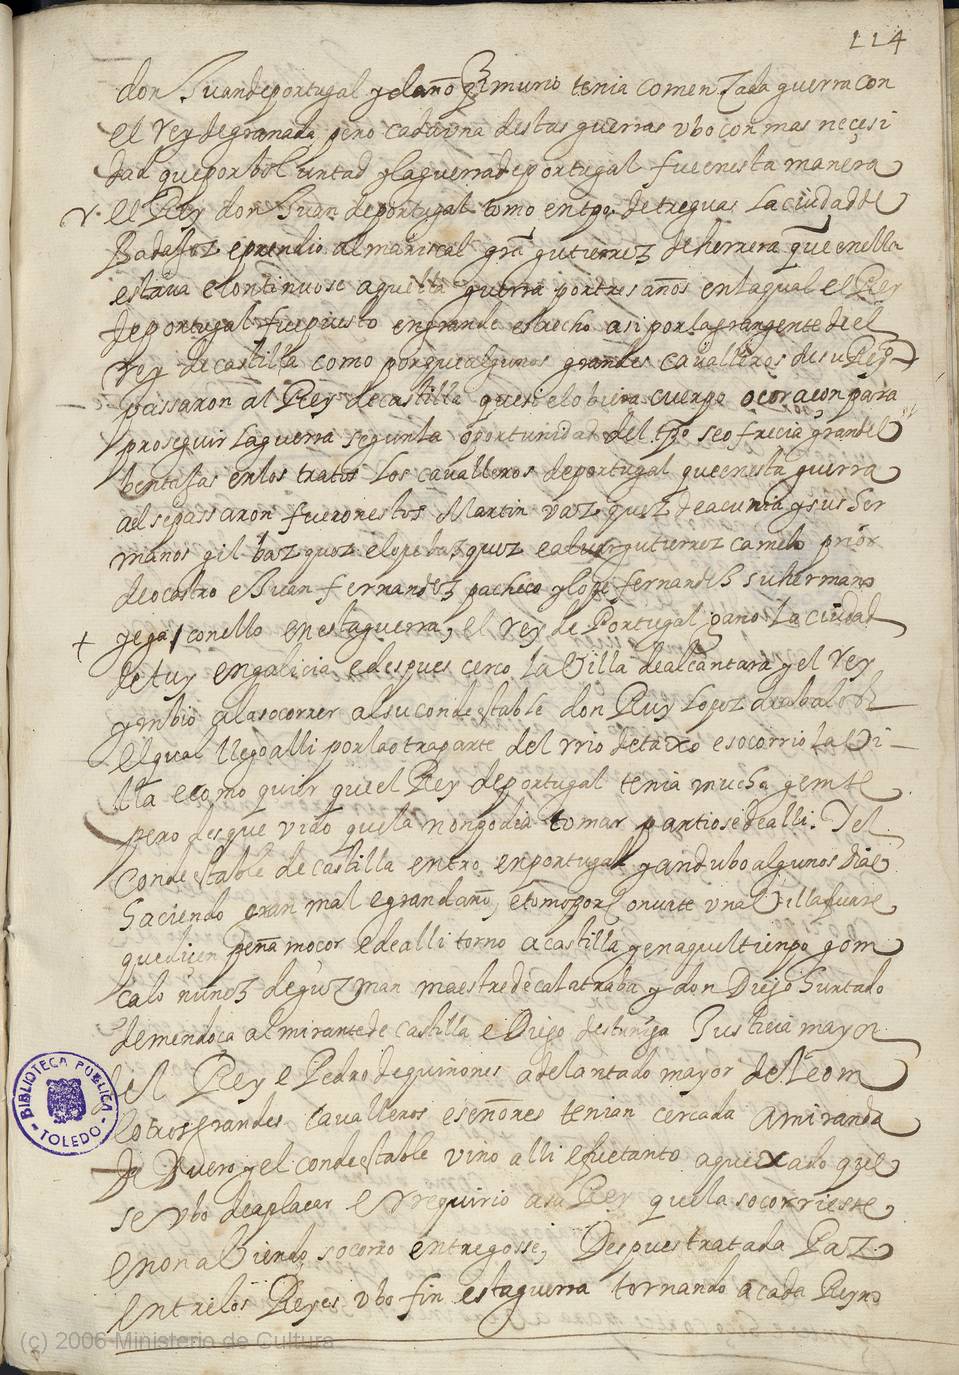 114
don Juan de portugal y el año q̃ murio tenia comenzada guerra con
el rey de granada pero cada una destas guerras ubo con mas neçesi
dad que por boluntad y la guerra de portugal fue en esta manera
El Rey don Juan de portugal tomo en tpo de treguas La ciudad de
Badajoz e prendio al mariscal gra gutierrez de herrera que en ella
estaua e continuose aquella guerra por tres años en la qual el Rey
de portugal fue puesto en grande estrecho asi por la grangente de el
rey de castilla como porque algunos grandes cavalleros de su Rey
passaron al Rey de castilla que si el obiera cuerpo o coraçon para
proseguir La guerra segun la oportunidad del tpo se ofrecia grandes
bentajas en los tratos Los cavalleros de portugal que en esta guerra
a el se passaron fueron estos Martin vazquez de acunia y sus her
manos gil bazquez e lope bazquez e gutierrez camelo prior
de ocastro e Juan fernandez pacheco y lope fernandez su hermano
y egas conello en esta guerra, el rey de Portugal gano La ciudad
de tuy en galicia e despues cerco La Villa de alcantara y el rey
ymbio a la socorrer al su condestable don Ruy Lopez dabalos
El qual llego alli por la otra parte del rrio de taxo e socorrio la Vi
lla e como quier que el Rey de portugal tenia mucha gente
pero desque vido que la non podia tomar partiose de alli. Y el
Condestable de castilla entro en portugal y andubo algunos dias
haciendo gran mal e gran daño, e tomo por conuite una Villa fuare
que dicen peña mocor e de alli torno a castilla y en aquel tienpo gom
calo nuñez de guzman maestre de calatraba y don Diego hurtado
de mendoca almirante de castilla e Diego destuñiga Justicia mayor
del Rey e Pedro de quiñones adelantado mayor de Leom
e otros grandes cavalleros e señores tenian cercada a miranda
de Duero y el condestable vino alli e fue tanto aquexado que
se ubo de aplaçar e rrequirio a su Rey que la socorriese
e non abiendo socorro entregosse, Despues tratada Paz
entre los Reyes ubo fin esta guerra tornando a cada Reyno
BIBLIOTECA PUBLICA
TOLEDO
(c) 2006 Ministerio de Cultura